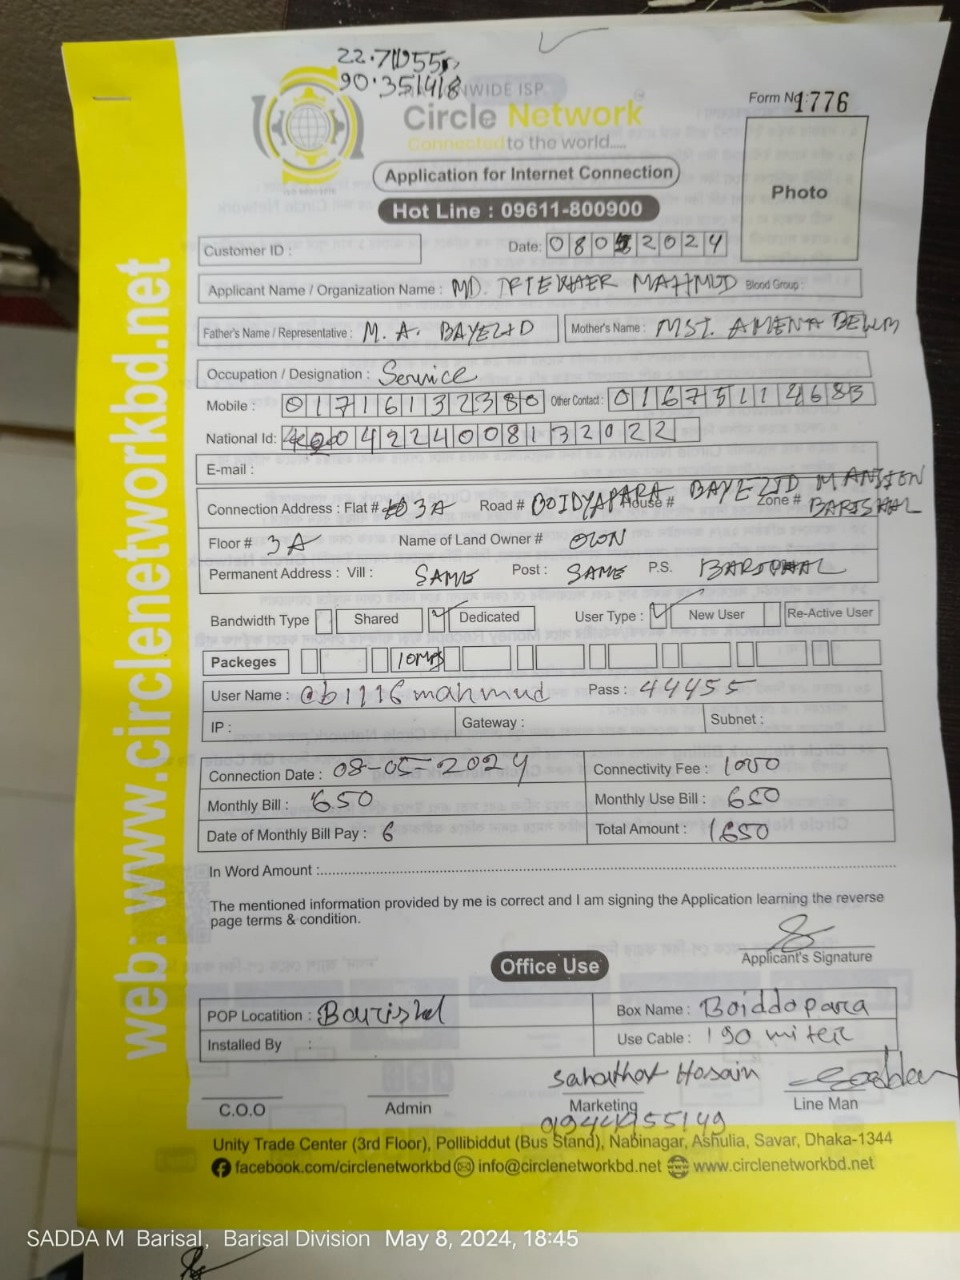 22.71055
90.351418
NWIDE ISP
Circle Network
Connected to the world.....
Form No 1776
Photo
Application for Internet Connection
Hot Line : 09611-800900
Customer ID :
Date: 08052024
Applicant Name / Organization Name : MD. MAHMUD Blood Group :
Father's Name / Representative : M. A. BAYEZID Mother's Name : MST. AMENA BEGUM
Occupation / Designation : Service
Mobile : 01716132380 Other Contact : 01675114683
National Id: 0422400813 2022
E-mail :
Connection Address : Flat # 3A Road # BOIDYAPARA House # BAYEZID MANSION Zone # BARISHAL
Floor # 3A Name of Land Owner # OWN
Permanent Address : Vill : SAME Post : SAME P.S. BARISHAL
Bandwidth Type Shared ✓ Dedicated User Type : ✓ New User Re-Active User
Packeges 10Mbs
User Name : cb1116mahmud Pass : 44455
IP : Gateway : Subnet :
Connection Date : 08-05-2024 Connectivity Fee : 1000
Monthly Bill : 650 Monthly Use Bill : 650
Date of Monthly Bill Pay : 6 Total Amount : 1650
In Word Amount :
The mentioned information provided by me is correct and I am signing the Application learning the reverse
page terms & condition.
Applicant's Signature
Office Use
POP Locatition : Barishal Box Name : Boiddopara
Installed By : Use Cable : 190 miter
Hosain
C.O.O Admin Marketing Line Man
Unity Trade Center (3rd Floor), Pollibiddut (Bus Stand), Nabinagar, Ashulia, Savar, Dhaka-1344
facebook.com/circlenetworkbd info@circlenetworkbd.net www.circlenetworkbd.net
web: www.circlenetworkbd.net
SADDA M Barisal, Barisal Division May 8, 2024, 18:45